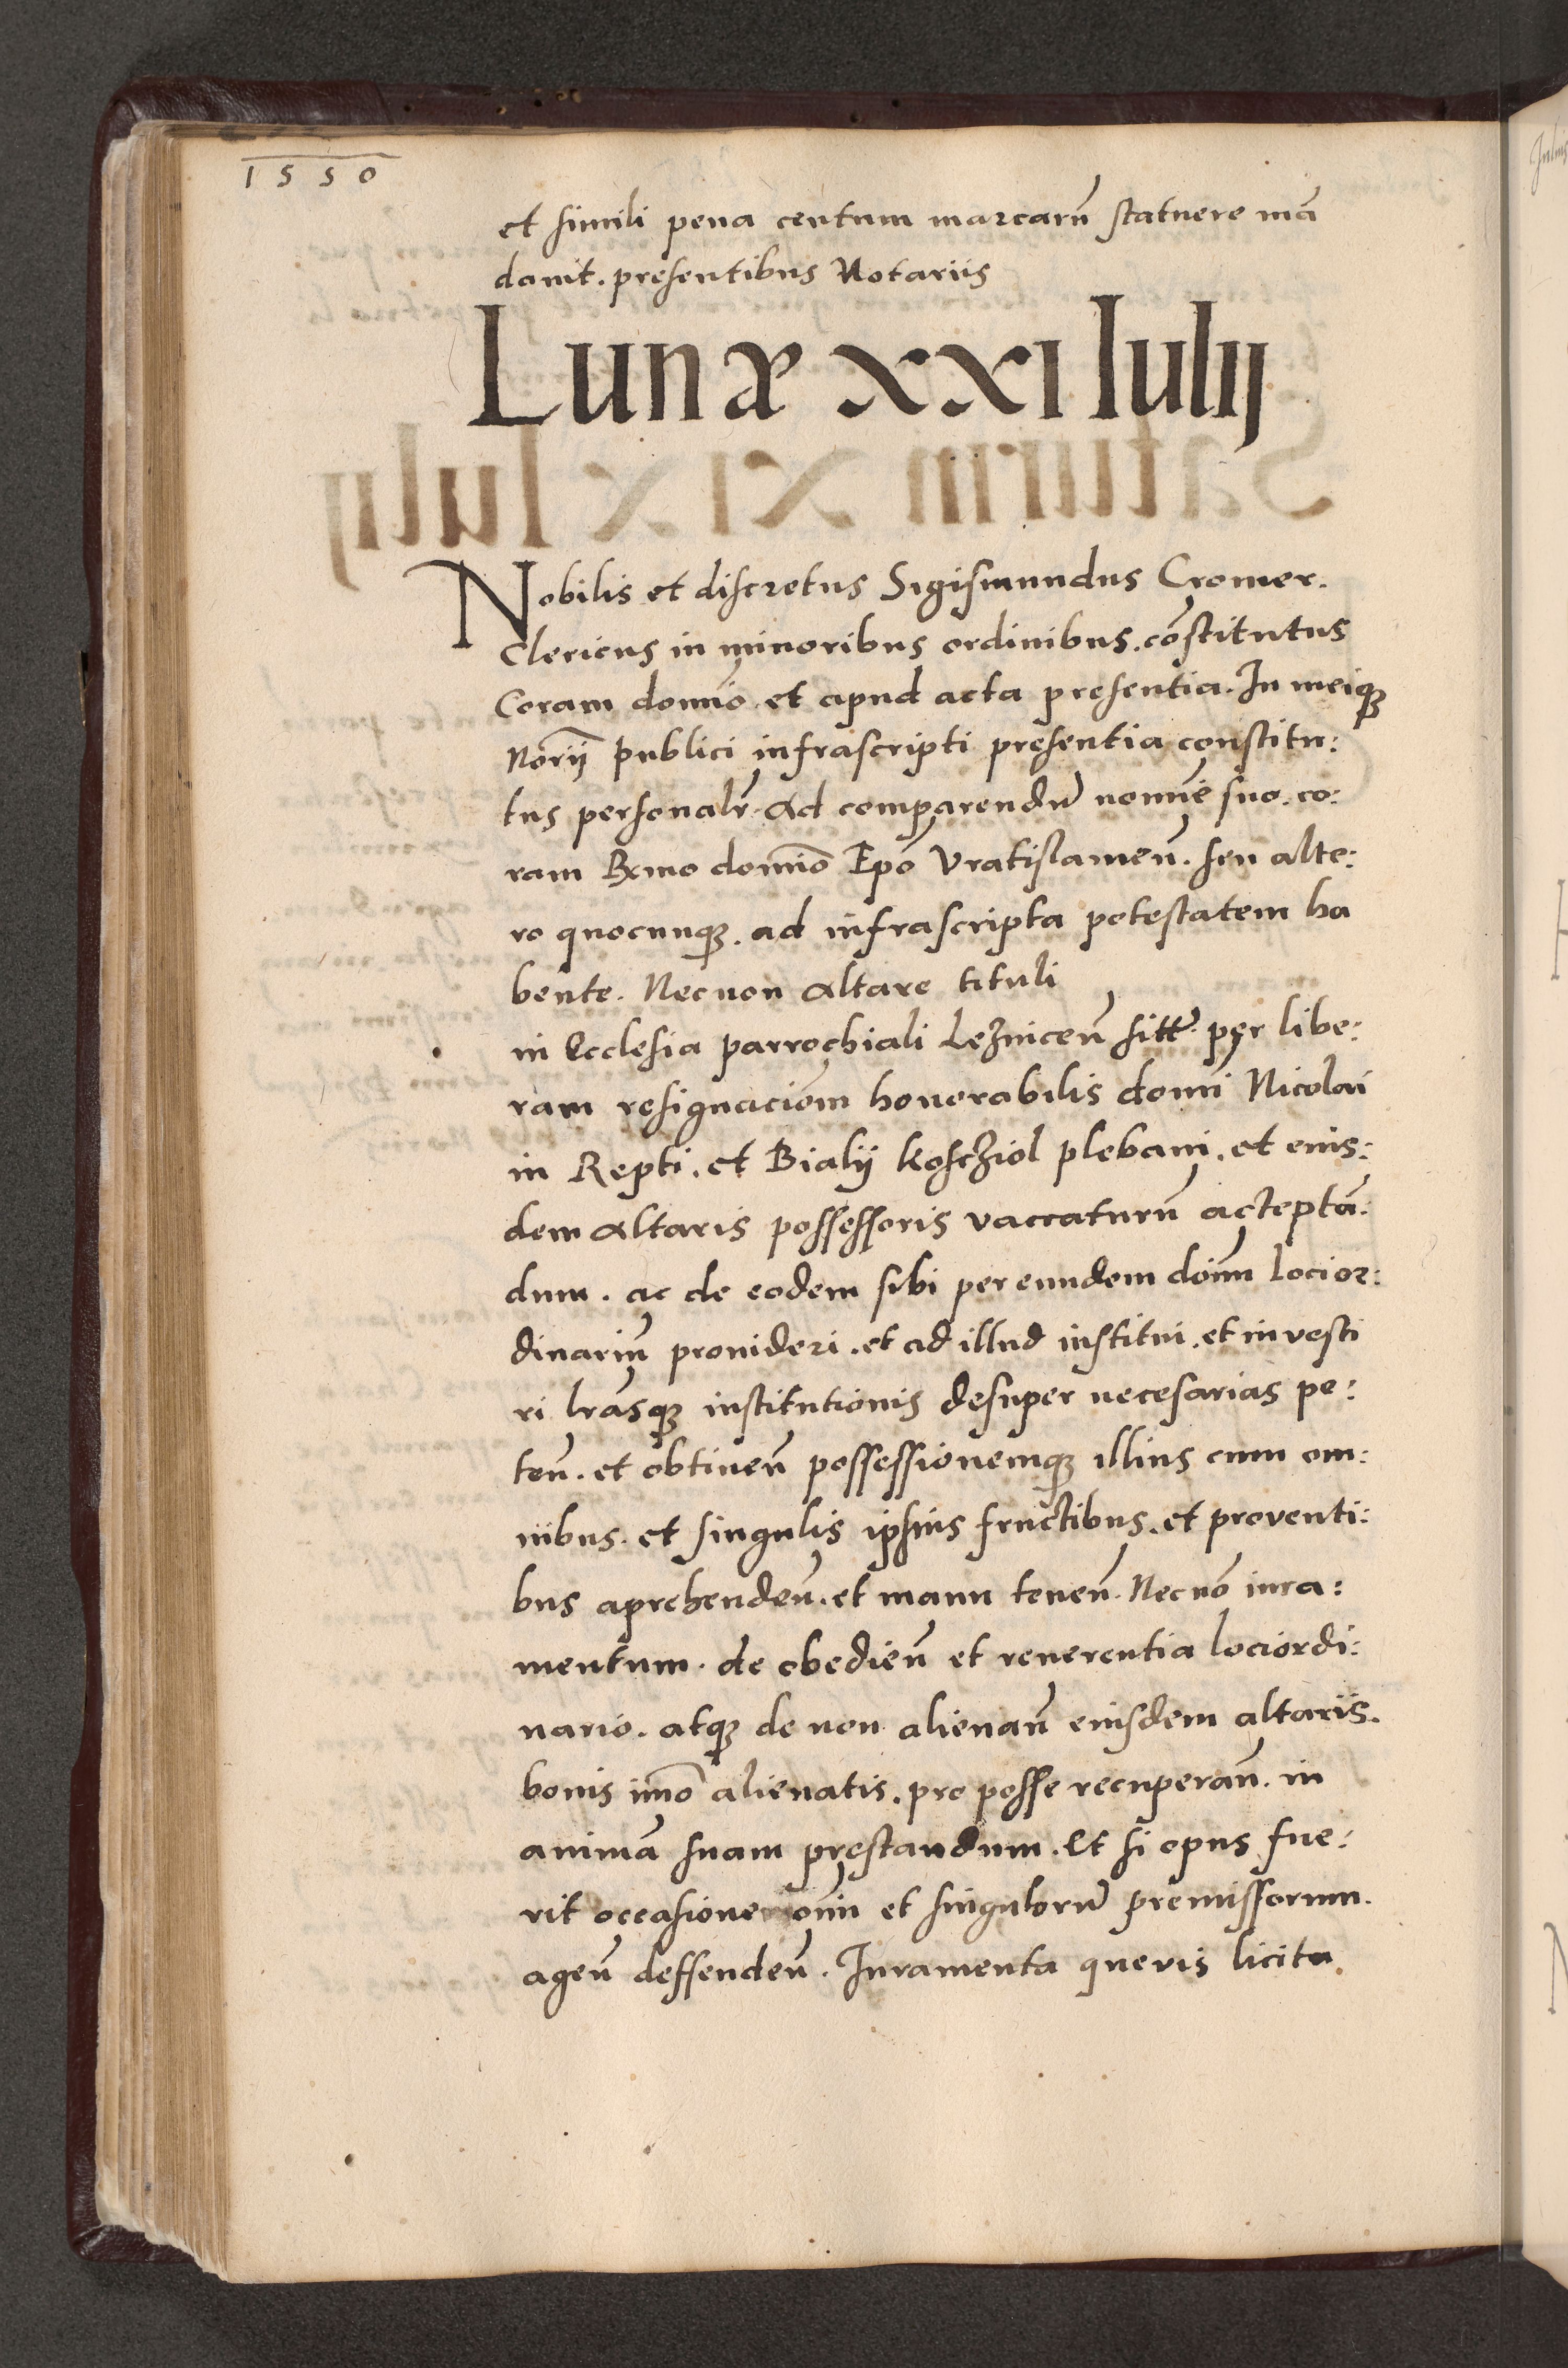 1550
et simili pena centum marcarũ statuere mã
dauit. presentibus Notariis
Lunæ XXI Iulij
Nobilis et discretus Sigismundus Cromer.
Clericus in minoribus ordinibus. cõstitutus
Coram domĩo et apud acta presentia. In meiqꝫ
Norij publici infrascripti presentia constitu:
tus personalr̃ Ad comparendũ nomĩe suo. co:
ram Rx̃mo domĩo Epõ Vratislauieñ. seu alte:
ro quocunqꝫ. ad infrascripta potestatem ha
bente. Necnon Altare tituli
in Ecclesia parrochiali Lezniceñ sitt̃ per libe:
ram resignaciõem honorabilis domĩ Nicolai
in Repti. et Bialij Koscziol plebani. et eius:
dem Altaris possessoris vaccaturũ acceptã:
dum. ac de eodem sibi per eundem doĩm locior:
dinariũ prouideri. et ad illud institui. et investi
ri lrãsqꝫ institutionis desuper necesarias pe:
teñ. et obtineñ possessionemqꝫ illius cum om:
nibus. et singulis ipsius fructibus. et proventi:
bus aprehendeñ. et manu teneñ. Necnõ iura:
mentum. de obedieñ et reuerentia lociordi:
nario. atqꝫ de non alienañ eiusdem altaris.
bonis imõ alienatis. pro posse recuperañ. in
animã suam prestandum. Et si opus fue:
rit occasione oĩm et singulorũ premissorum.
ageñ deffendeñ. Iuramenta quevis licita